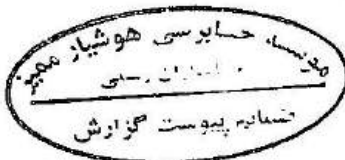 موسسه حسابرسی هوشیار ممیز
حسابداران رسمی
ضمائم پیوست گزارش